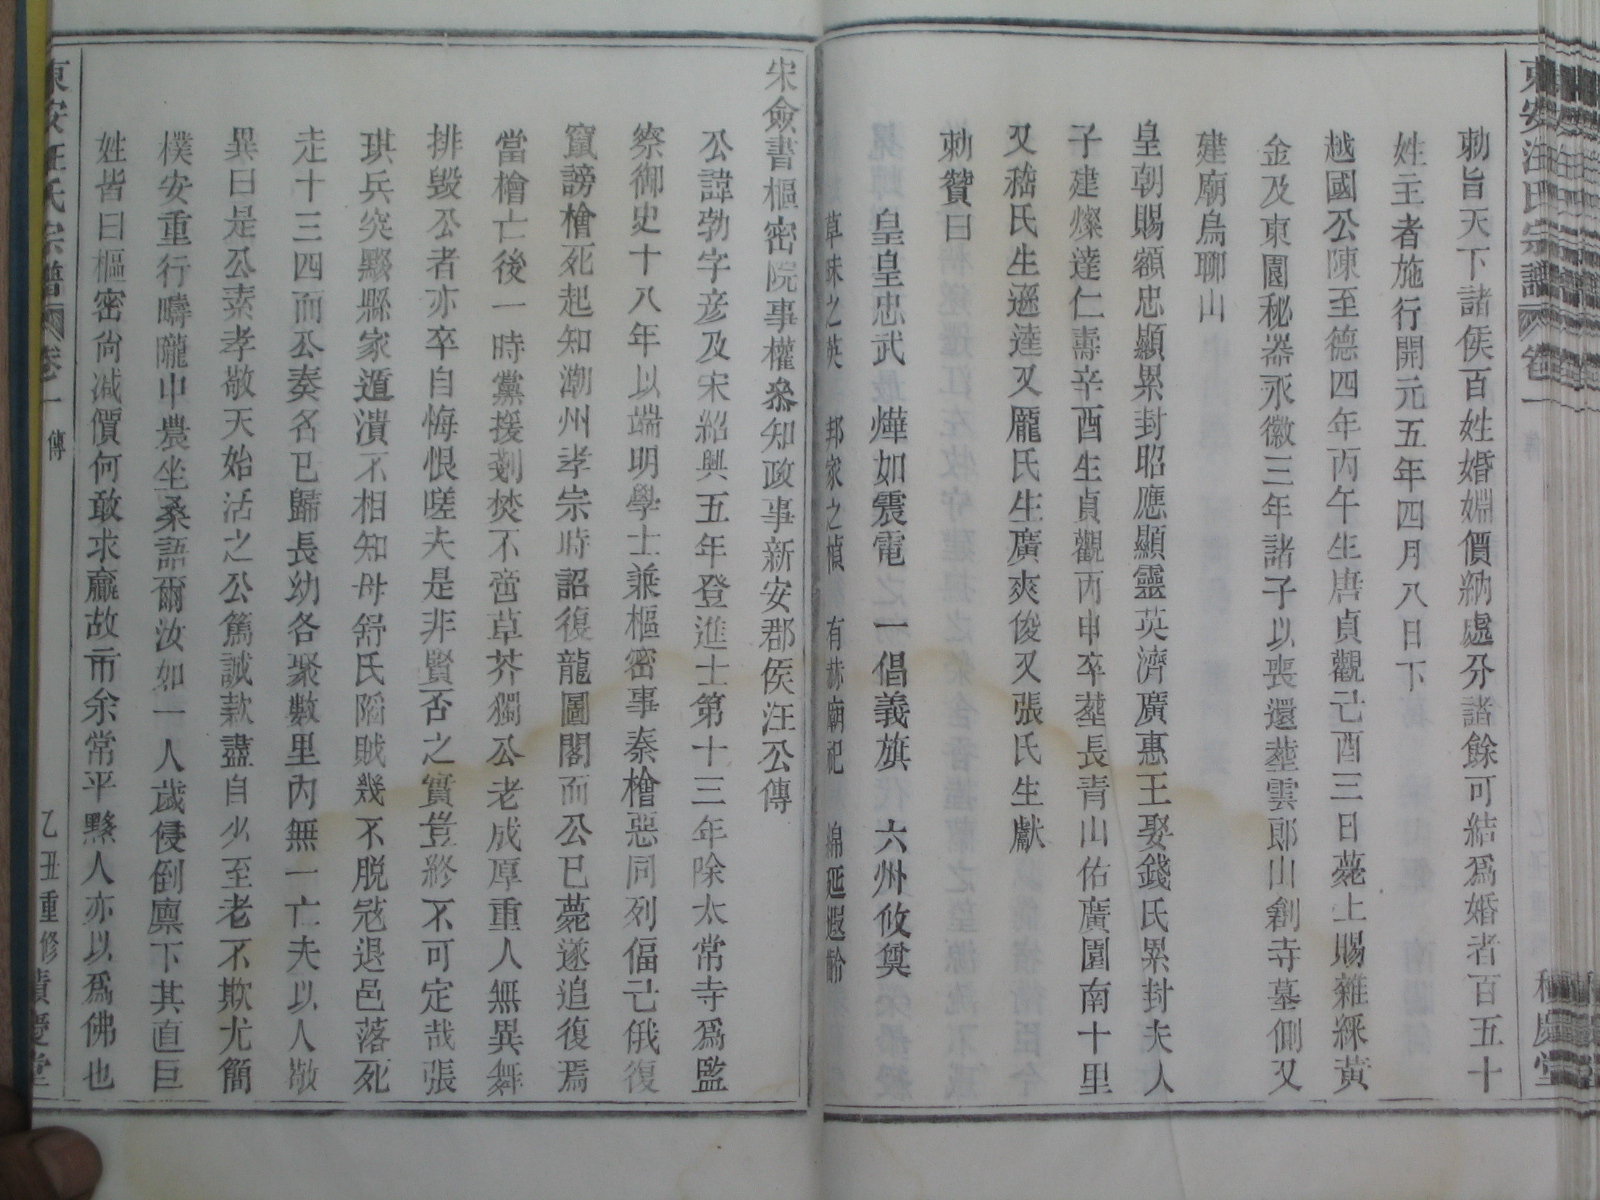 東安汪氏宗譜 卷一 傳 積慶堂
勅旨天下諸侯百姓婚姻價納處分諸餘可結爲婚者百五十
姓主者施行開元五年四月八日下
越國公陳至德四年丙午生唐貞觀己酉三日薨上賜雜綵黃
金及東園秘器永徽三年諸子以喪還塟雲郎山創寺墓側又
建廟烏聊山
皇朝賜額忠顯累封昭應顯靈英濟廣惠王娶錢氏累封夫人
子建燦達仁壽辛酉生貞觀丙申卒塟長青山佑廣園南十里
又嵇氏生遜達又龐氏生廣爽俊又張氏生獻
勅贊曰
皇皇忠武 燁如震電 一倡義旗 六州攸奠
草昧之英 邦家之楨 有赫廟祀 綿延遐齡
宋僉書樞密院事權叅知政事新安郡侯汪公傳
公諱勃字彦及宋紹興五年登進士第十三年除太常寺爲監
察御史十八年以端明學士兼樞密事秦檜惡同列偪己俄復
竄謗檜死起知潮州孝宗時詔復龍圖閣而公已薨遂追復焉
當檜亡後一時黨援剗焚不啻草芥獨公老成厚重人無異舞
排毀公者亦卒自悔恨嗟夫是非賢否之實豈終不可定哉張
琪兵突黟縣家遁潰不相知母舒氏䧟賊幾不脫冦退邑落死
走十三四而公奏名已歸長幼各聚數里內無一亡夫以人敵
異曰是公素孝敬天始活之公篤誠款盡自少至老不欺尤簡
樸安重行疇隴中農坐桑語爾汝如一人歲侵倒廪下其直巨
姓皆曰樞密尙減價何敢求贏故市余常平黟人亦以爲佛也
東安汪氏宗譜 卷一 傳 乙丑重修 積慶堂